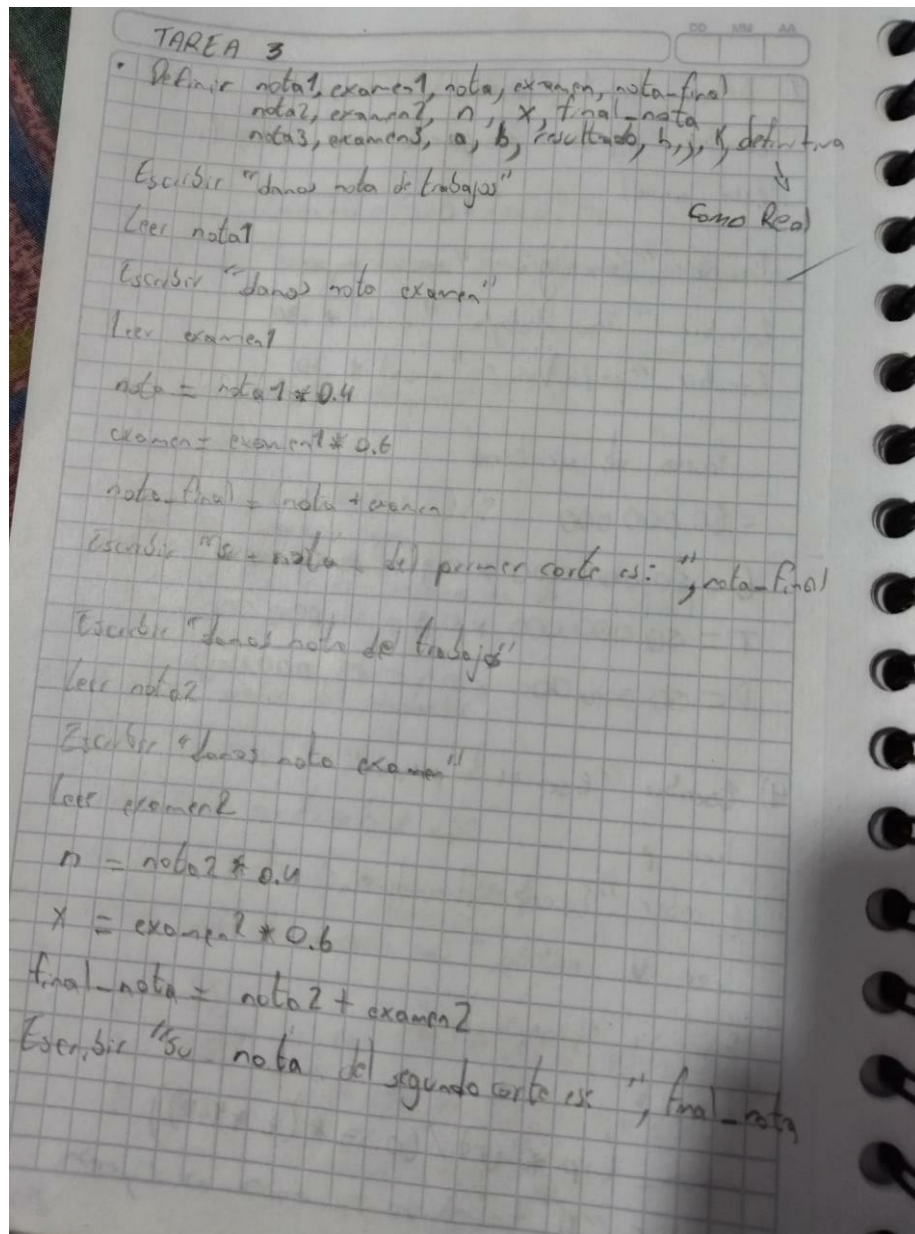 DD MM AA
TAREA 3
• Definir nota1, examen1, nota, examen, nota_final
nota2, examen2, n, x, final_nota
nota3, examen3, a, b, resultado, h, j, k, definitiva
↓
Como Real
Escribir "danos nota de trabajos"
Leer nota1
Escribir "danos nota examen"
Leer examen1
nota = nota1 * 0.4
examen = examen1 * 0.6
nota_final = nota + examen
Escribir "su nota del primer corte es: ", nota_final
Escribir "danos nota de trabajos"
Leer nota2
Escribir "danos nota examen"
Leer examen2
n = nota2 * 0.4
x = examen2 * 0.6
final_nota = nota2 + examen2
Escribir "su nota del segundo corte es: ", final_nota